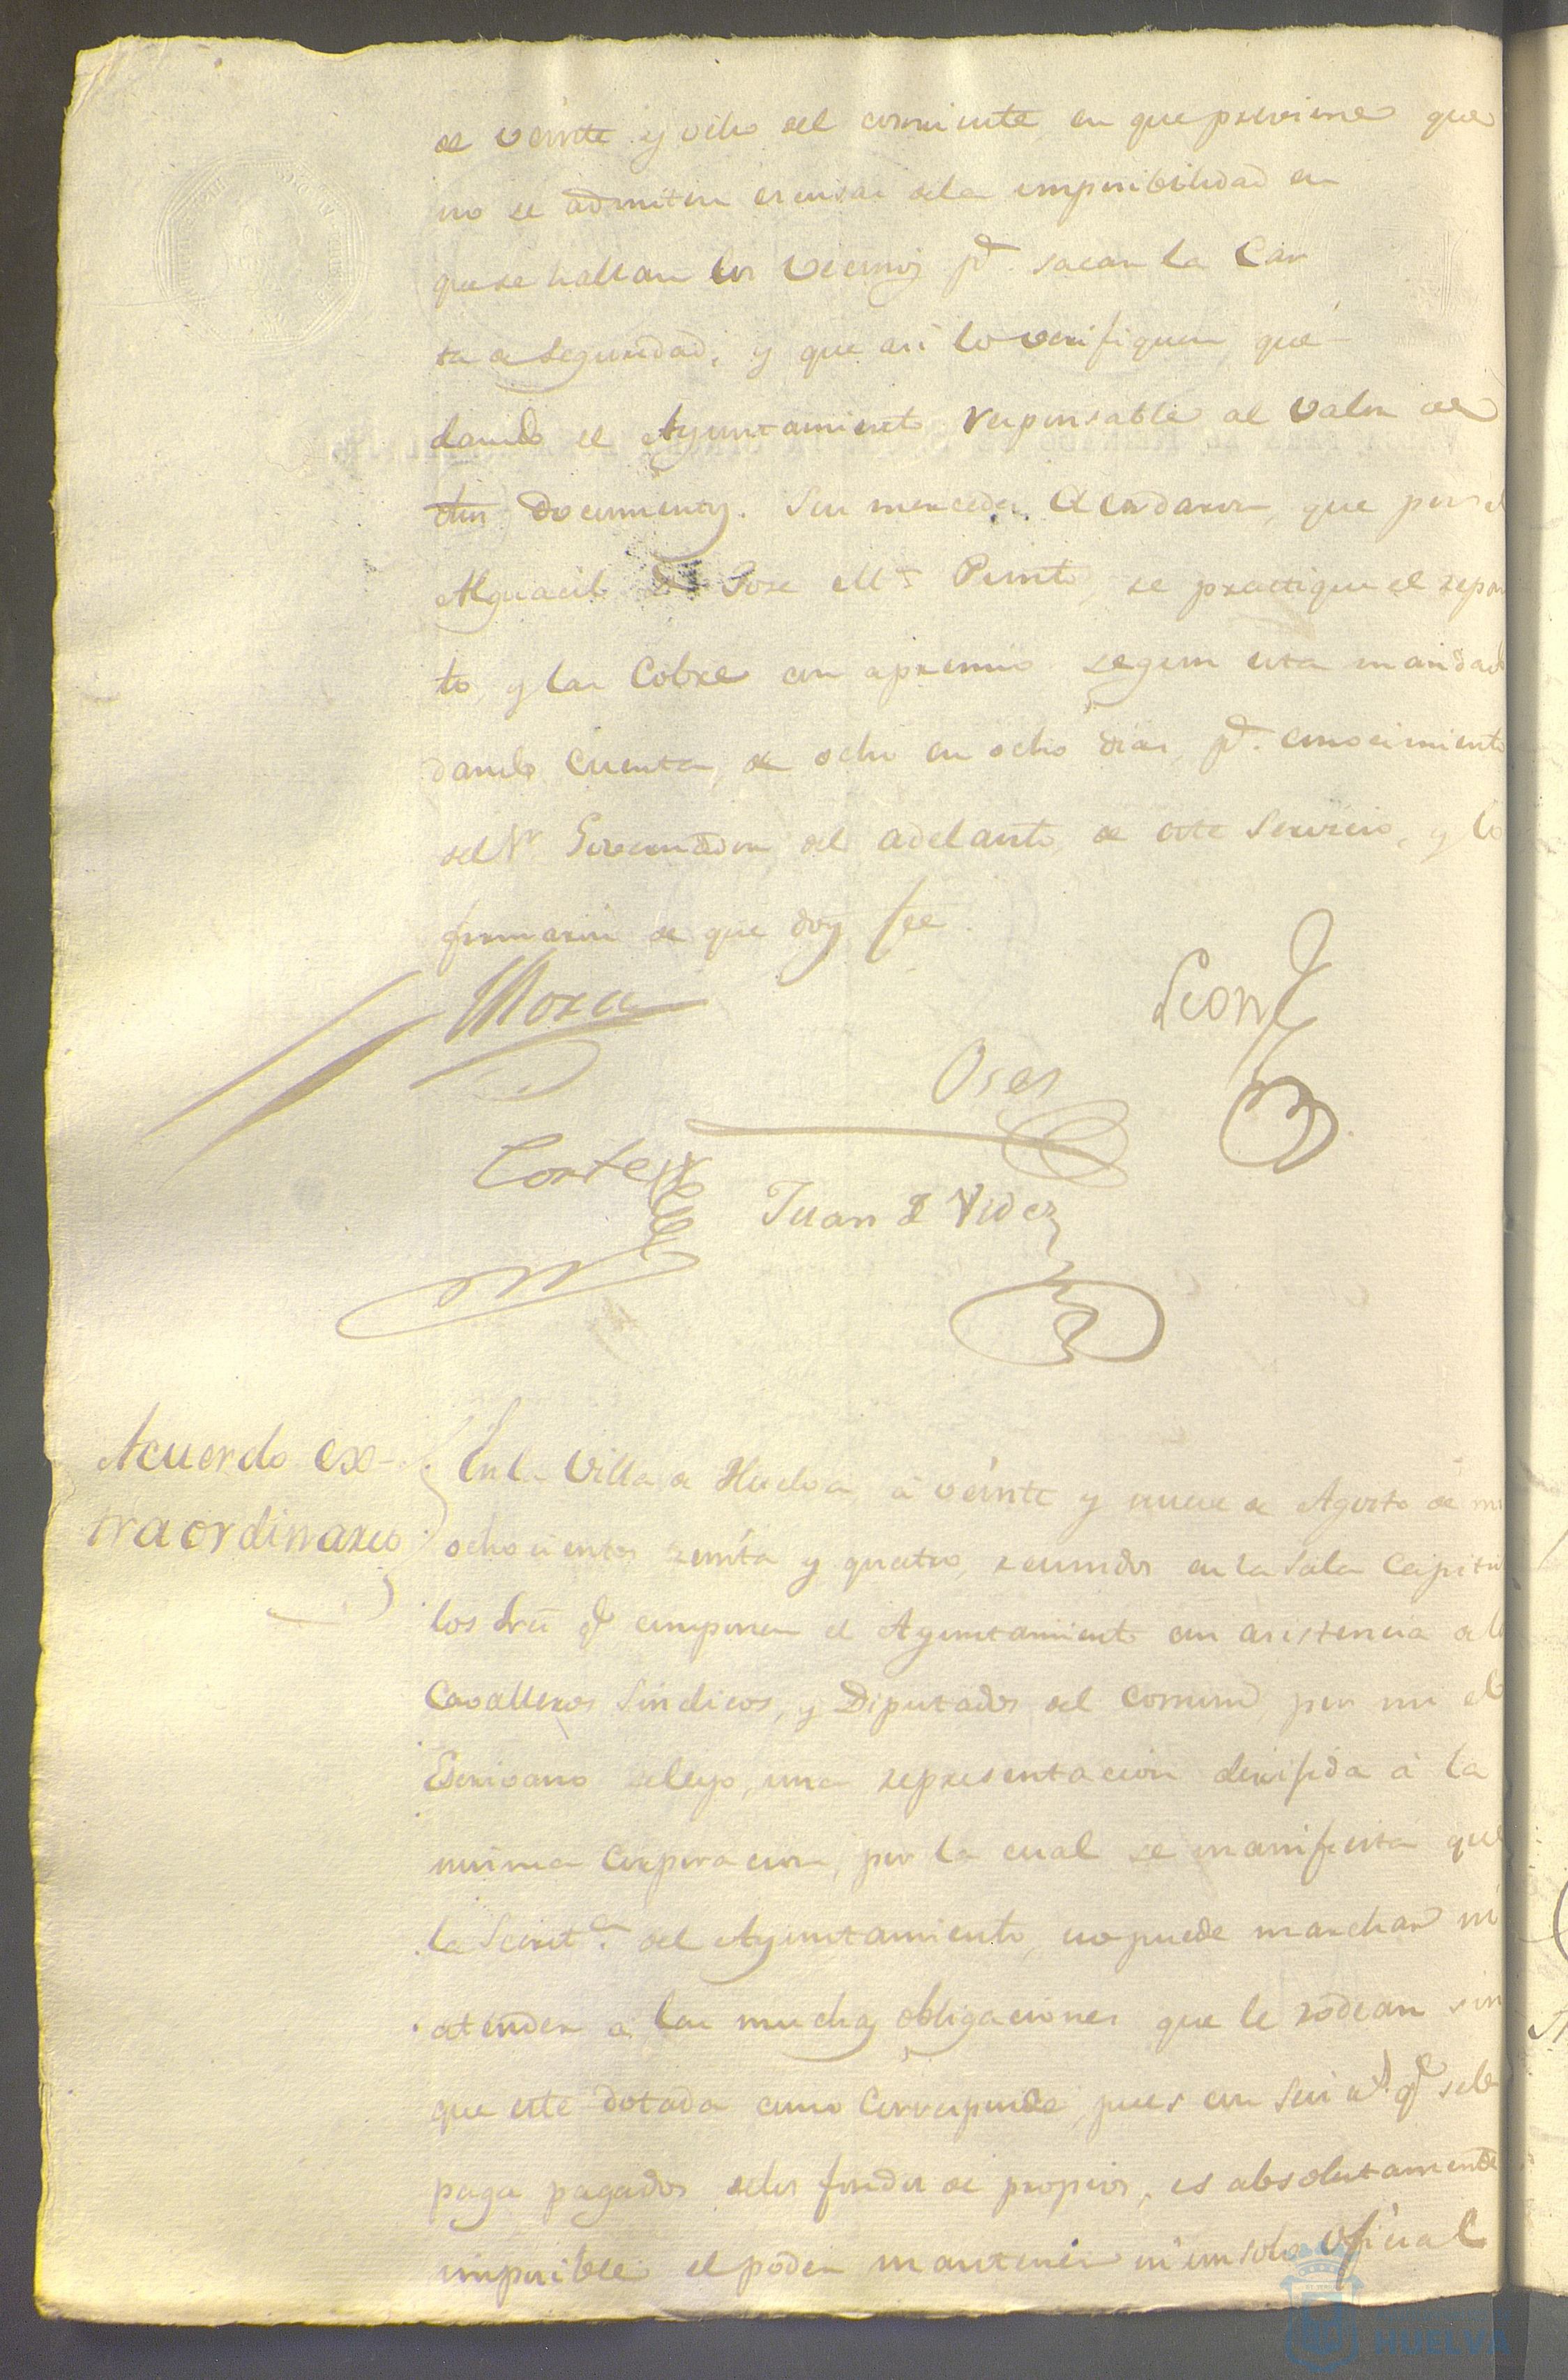 de veinte y ocho del corriente en que previene que
no se admiten escusas dela imposibilidad en
que se hallan los vecinos pª. sacar la Car
ta de seguridad, y que asi lo verifiquen, que-
dando el Ayuntamiento responsable al valor de
dhos documentos. Sus mercedes Acordaron, que por el
Alguacil Jose Mª Pinto, se practique el repar
to, y las Cobre con apremio segun esta mandado
dando Cuenta, de ocho en ocho dias, pª. conocimiento
del Sr Governador del adelanto de este Servicio, y lo
firmaron de que doy fee.
Mora
Leon
Oses
Cortes
Juan
Acuerdo ex-
traordinario
En la Villa de Huelva à veinte y nueve de Agosto de mi
ochocientos treinta y quatro, reunidos en la Sala Capitu
los Sres qe componen el Ayuntamiento con asistencia de lo
Cavalleros Sindicos, y Diputados del Comun, por mi el
Escrivano se leyo, una representacion dirijida à la
misma Corporacion, por la cual se manifiesta que
la Secretª. del Ayuntamiento, no puede marchar ni
atender a las muchas obligaciones que le rodean sin
que este dotada como Corresponde, pues con seis rs. qe se le
paga pagados delos fondos de propios, es absolutamente
imposible el poder mantener ni un solo Oficial
HUELVA